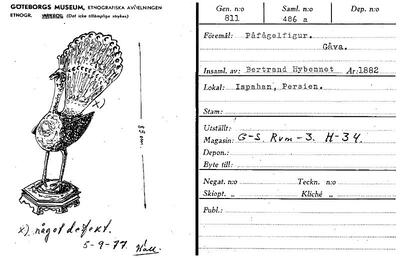 GÖTEBORGS MUSEUM, ETNOGRAFISKA AVDELNINGEN
ETNOGR. IMPEROL (Det icke tillämpliga strykes)
x)
85 cm
x) något defekt.
5-9-77 Wall.
Gen. n:o
811
Saml. n:o
486 a
Dep. n:o
Föremål: Påfågelfigur.
Gåva.
Insaml. av: Bertrand Hybennet År:1882
Lokal: Ispahan, Persien.
Stam:
Utställt:
Magasin: G-S. Rum-3. H-34.
Depon.:
Byte till:
Negat. n:o
Teckn. n:o
Skiopt. „
Kliché „
Publ.: